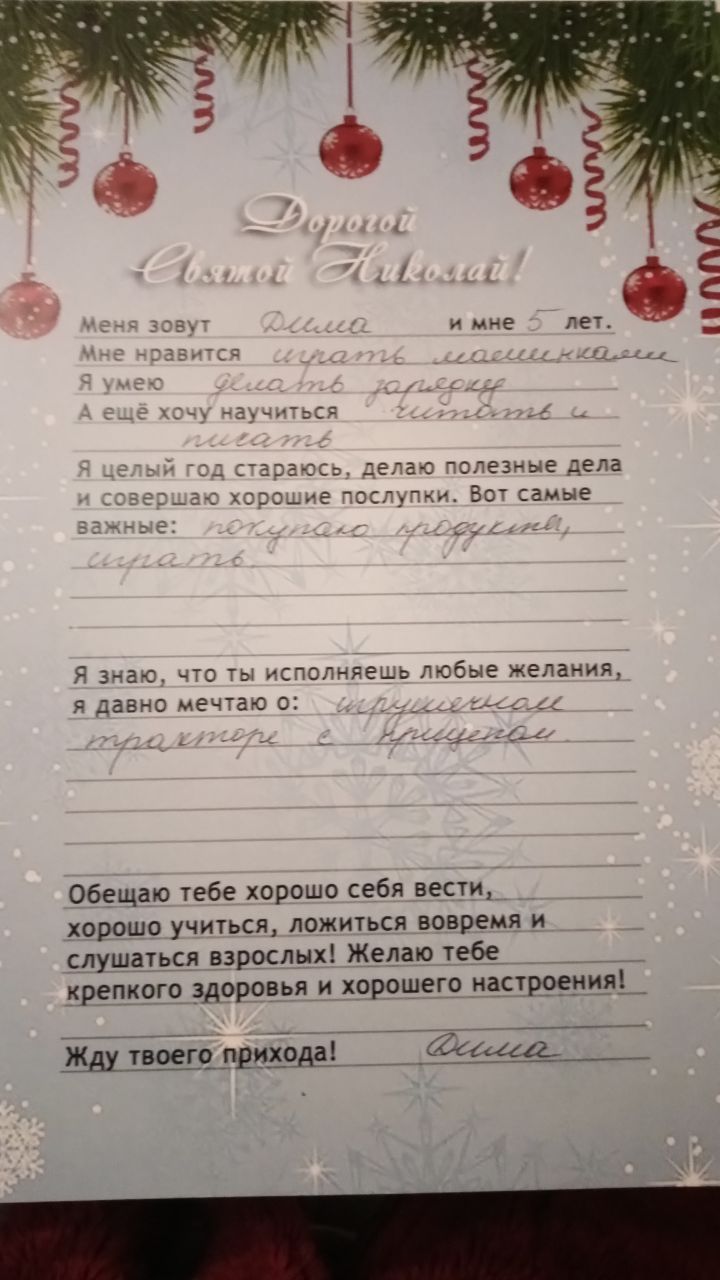 Дорогой
Святой Николай!
Меня зовут Дима и мне 5 лет.
Мне нравится играть машинками
Я умею делать зарядку
А ещё хочу научиться читать и
писать
Я целый год стараюсь, делаю полезные дела
и совершаю хорошие послупки. Вот самые
важные: покупаю продукты,
играть.
Я знаю, что ты исполняешь любые желания,
я давно мечтаю о: игрушечном
тракторе с прицепом.
Обещаю тебе хорошо себя вести,
хорошо учиться, ложиться вовремя и
слушаться взрослых! Желаю тебе
крепкого здоровья и хорошего настроения!
Жду твоего прихода! Дима